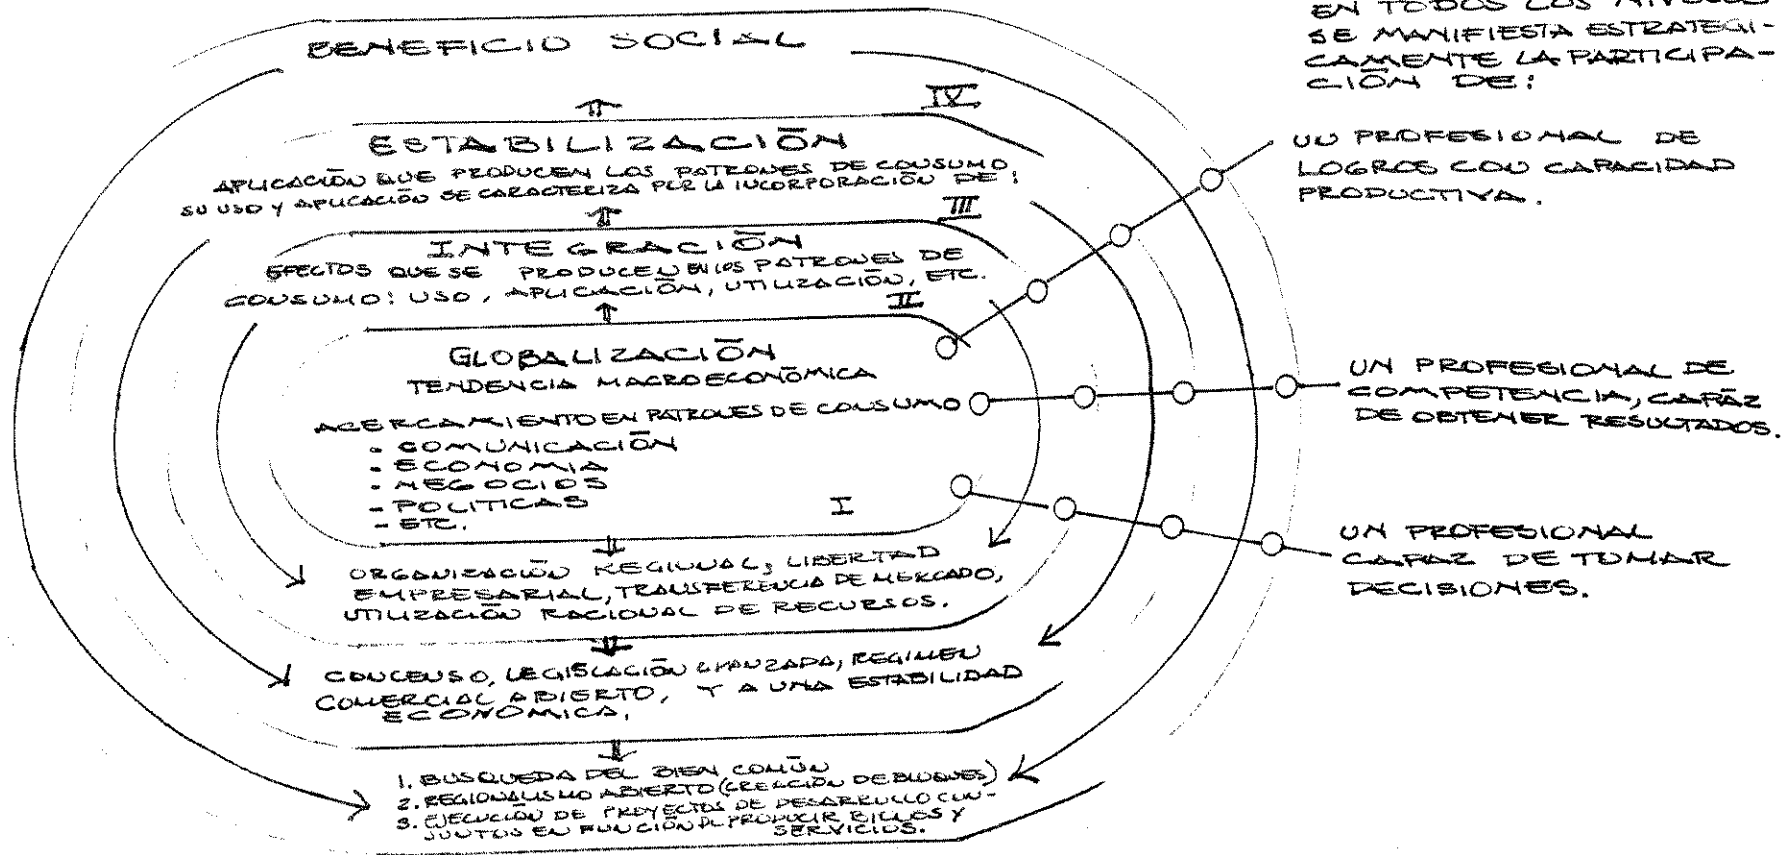 BENEFICIO SOCIAL
IV
ESTABILIZACIÓN
APLICACIÓN QUE PRODUCEN LOS PATRONES DE CONSUMO
SU USO Y APLICACIÓN SE CARACTERIZA POR LA INCORPORACIÓN DE:
III
INTEGRACIÓN
EFECTOS QUE SE PRODUCEN EN LOS PATRONES DE
CONSUMO: USO, APLICACIÓN, UTILIZACIÓN, ETC.
II
GLOBALIZACIÓN
TENDENCIA MACROECONÓMICA
ACERCAMIENTO EN PATRONES DE CONSUMO
- COMUNICACIÓN
- ECONOMIA
- NEGOCIOS
- POLITICAS
- ETC.
I
ORGANIZACIÓN REGIONAL, LIBERTAD
EMPRESARIAL, TRANSFERENCIA DE MERCADO,
UTILIZACIÓN RACIONAL DE RECURSOS.
CONCENSO, LEGISLACIÓN AVANZADA, REGIMEN
COMERCIAL ABIERTO, Y A UNA ESTABILIDAD
ECONÓMICA.
1. BUSQUEDA DEL BIEN COMÚN
2. REGIONALISMO ABIERTO (CREACIÓN DE BLOQUES)
3. EJECUCIÓN DE PROYECTOS DE DESARROLLO CON-
JUNTOS EN FUNCIÓN DE PRODUCIR BIENES Y
SERVICIOS.
EN TODOS LOS NIVELES
SE MANIFIESTA ESTRATEGI-
CAMENTE LA PARTICIPA-
CIÓN DE:
UN PROFESIONAL DE
LOGROS CON CAPACIDAD
PRODUCTIVA.
UN PROFESIONAL DE
COMPETENCIA, CAPÁZ
DE OBTENER RESULTADOS.
UN PROFESIONAL
CAPAZ DE TOMAR
DECISIONES.